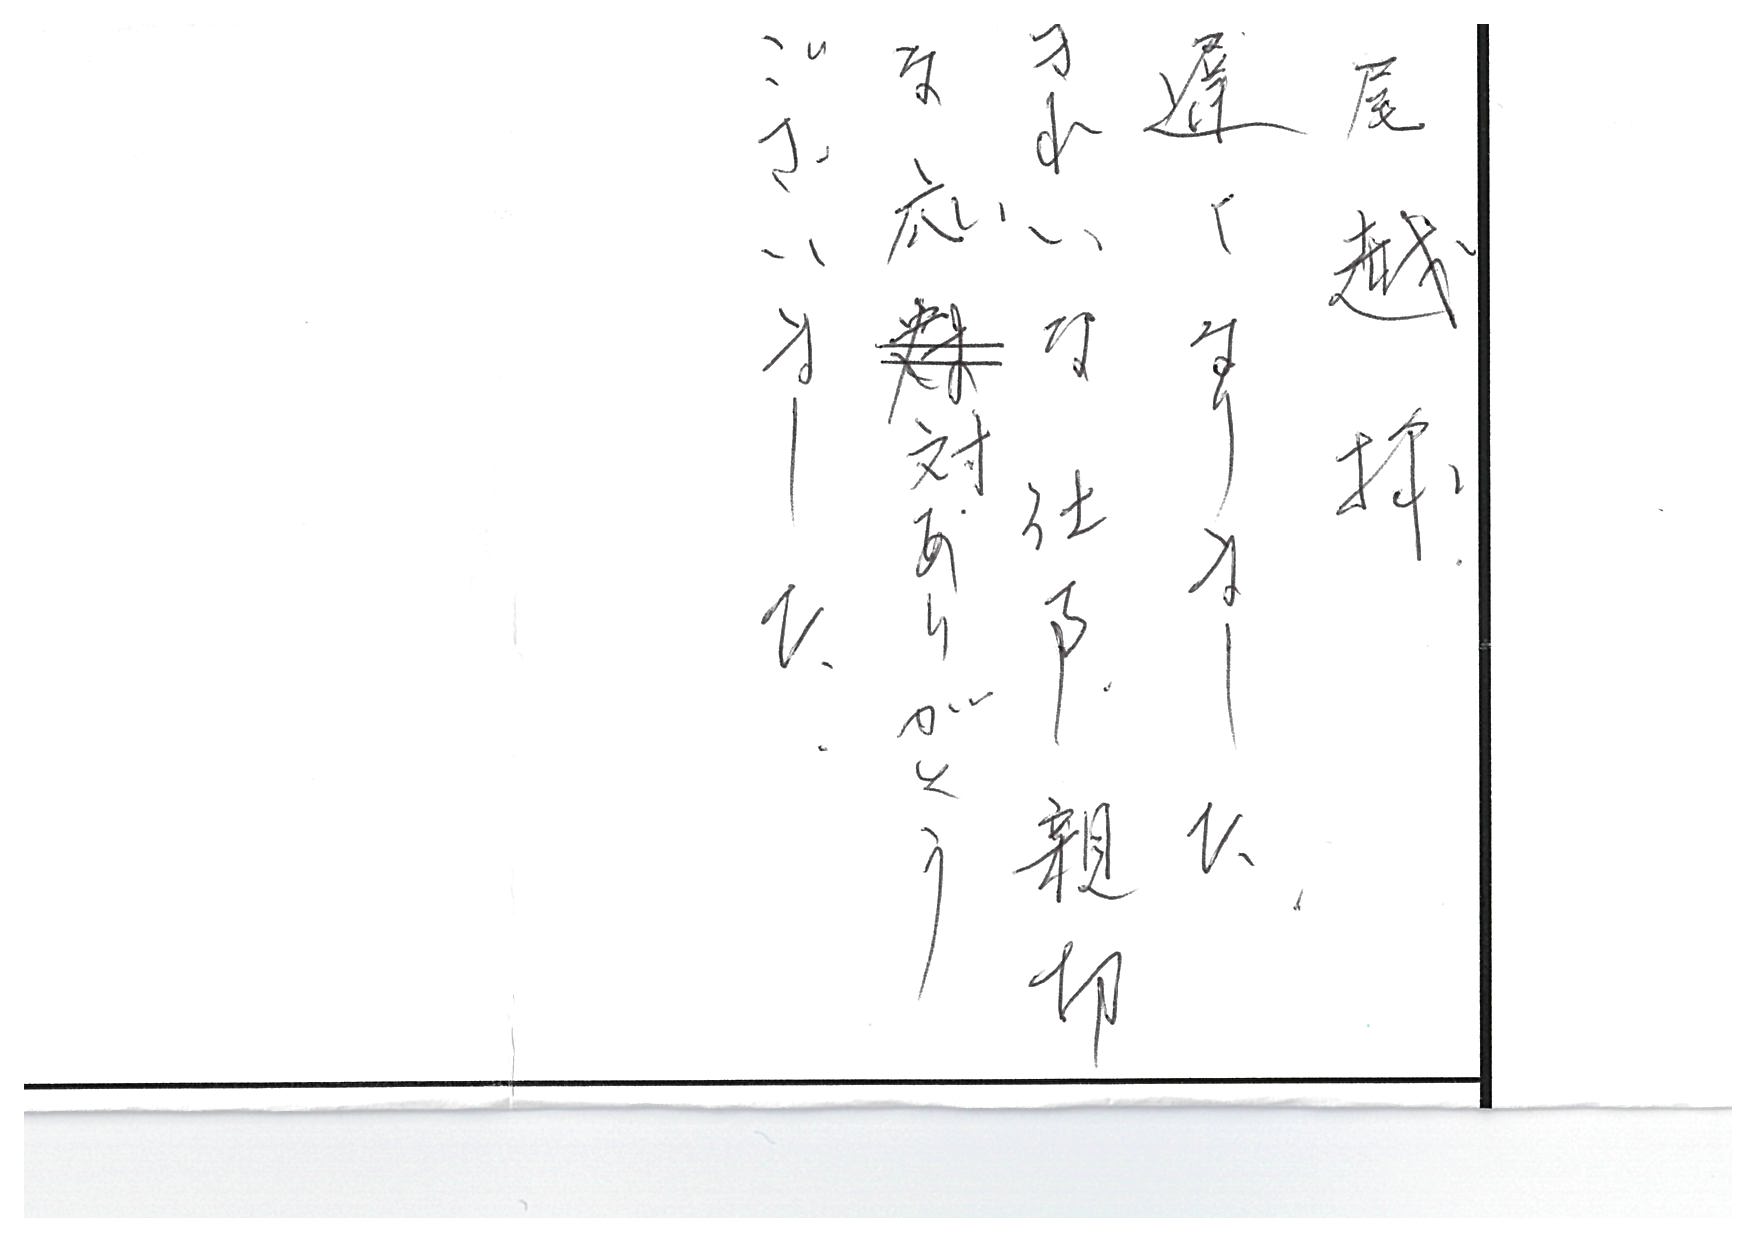 尾越様
遅くなりました
きれいな仕事、親切
な応対ありがとう
ございました。